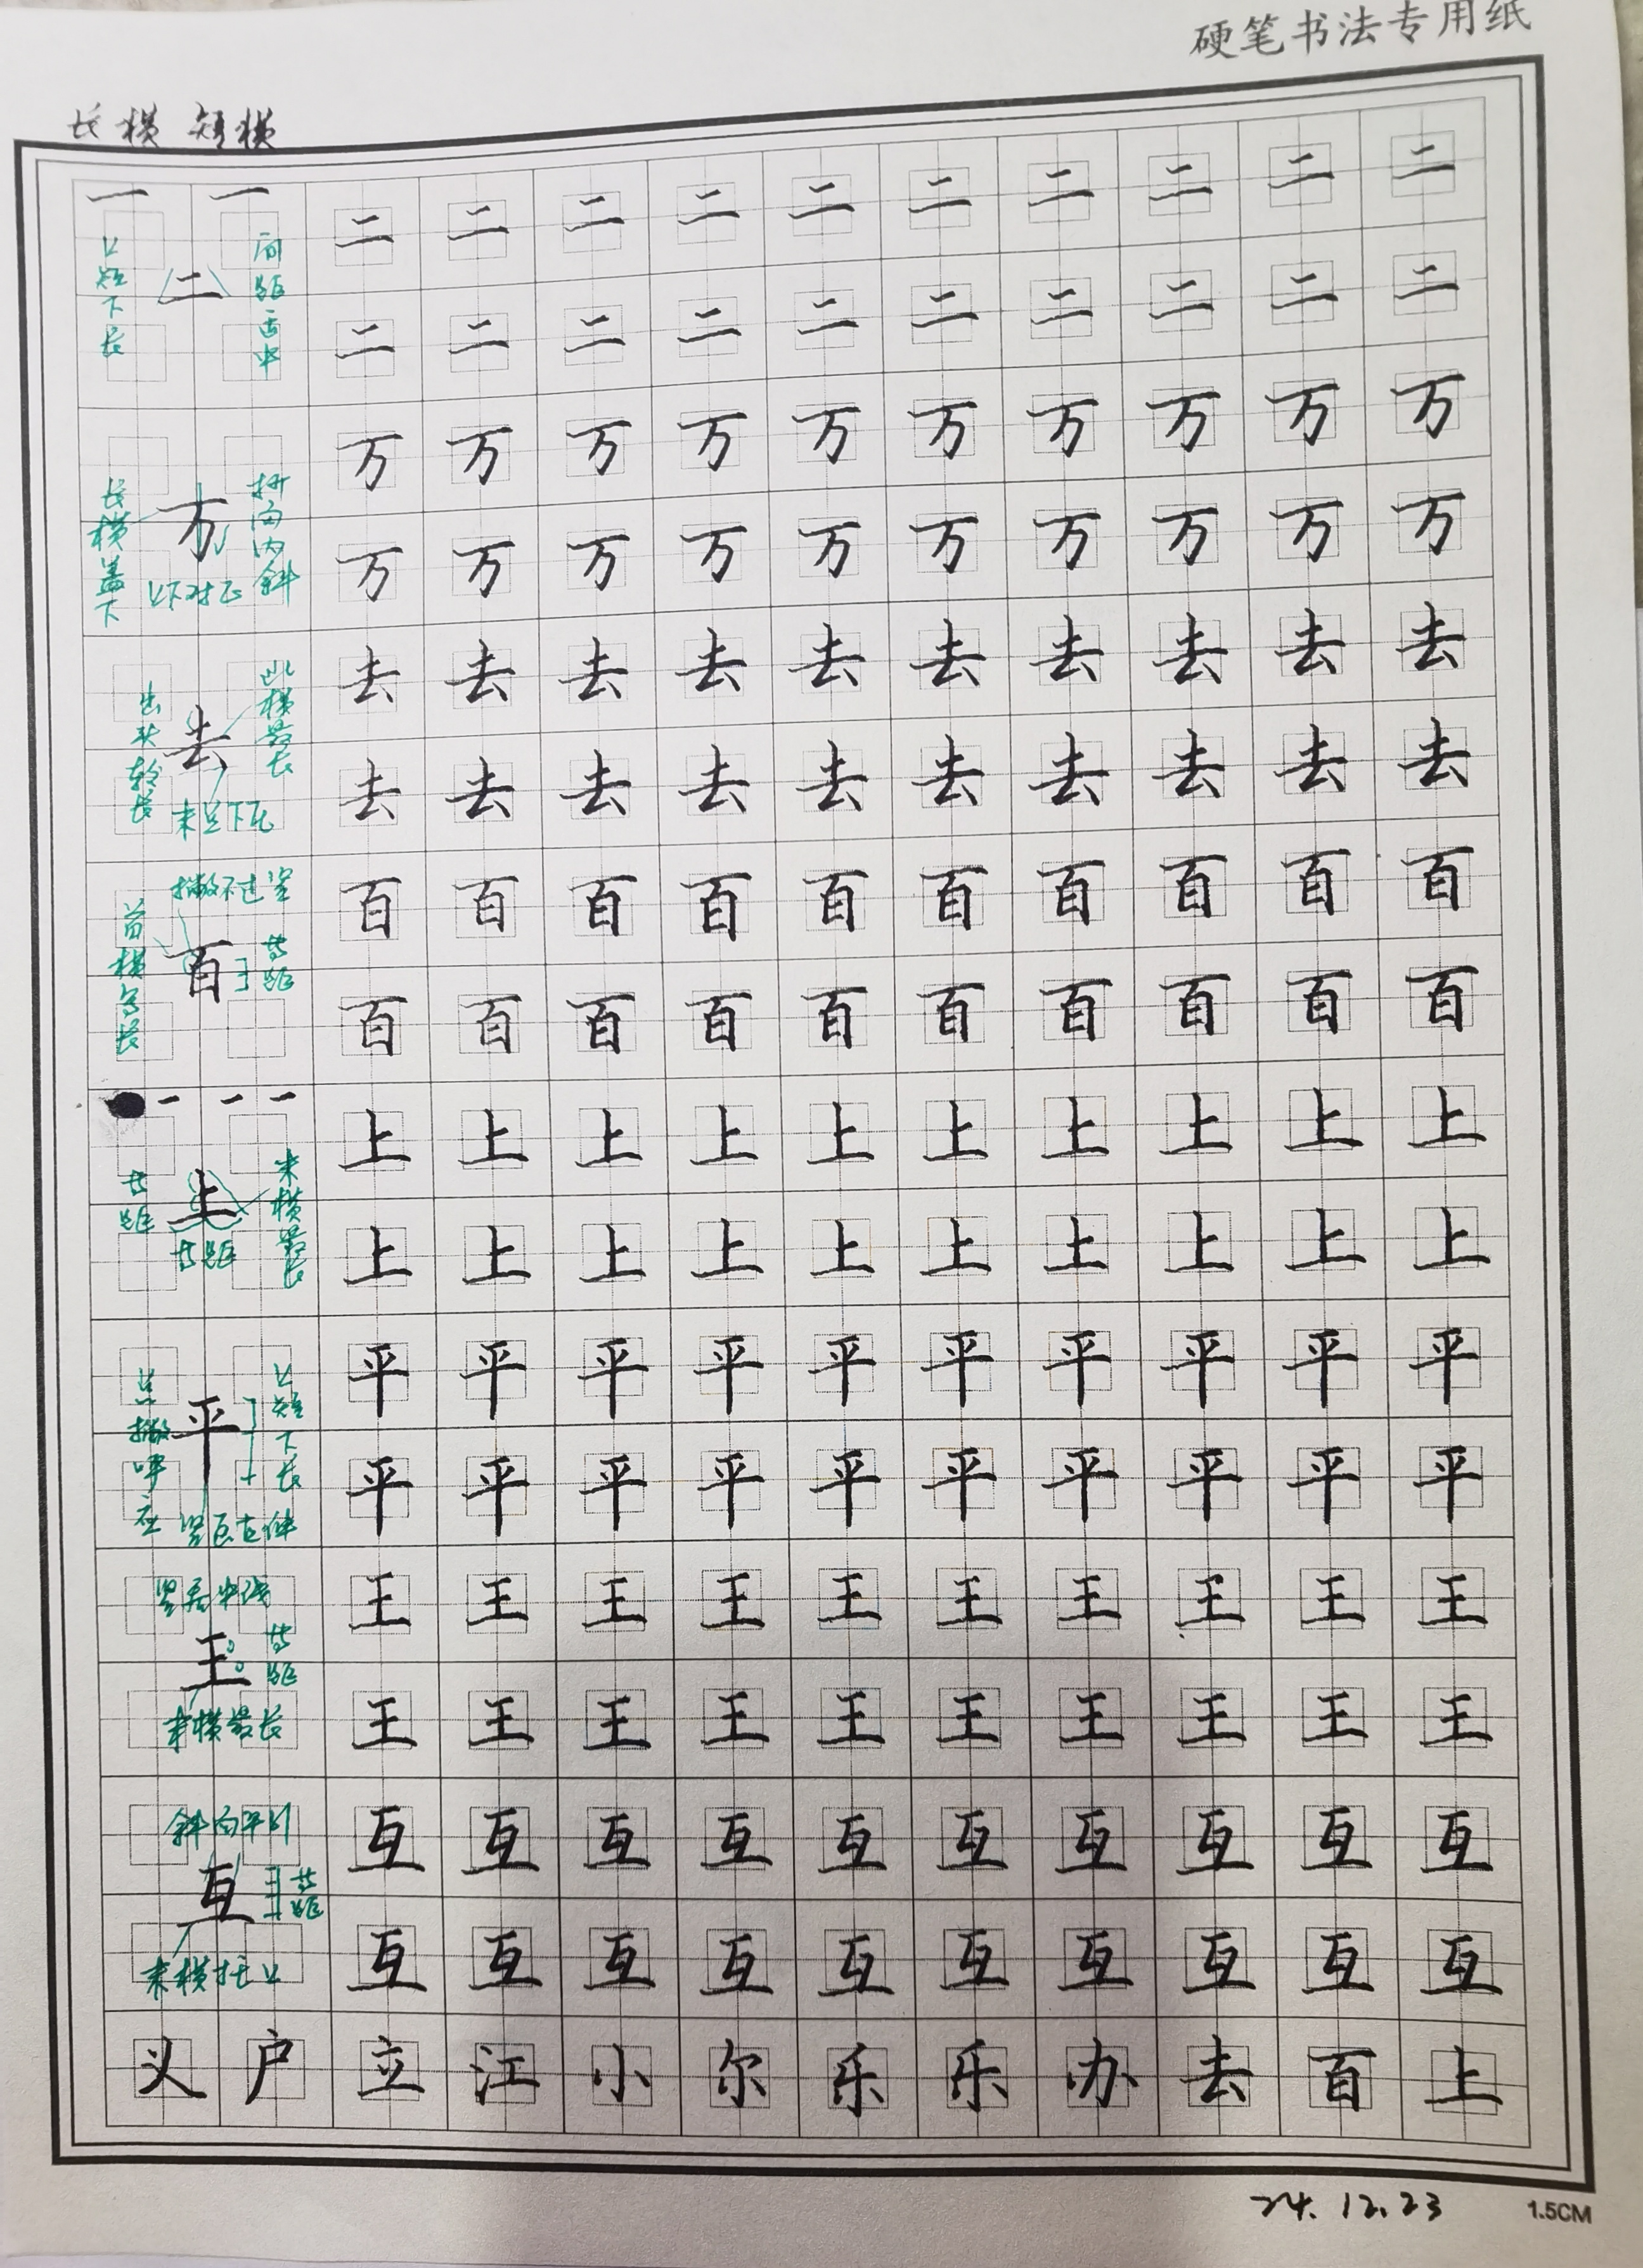 硬笔书法专用纸
长横 短横
一 一
二 二 二 二 二 二 二 二 二 二
上短下长
二
间距适中
二 二 二 二 二 二 二 二 二 二
万 万 万 万 万 万 万 万 万 万
长横盖下
万
折向内斜
上下对正
万 万 万 万 万 万 万 万 万 万
去 去 去 去 去 去 去 去 去 去
出头较长
去
此横最长
末点下瓦
去 去 去 去 去 去 去 去 去 去
撇不过竖
百 百 百 百 百 百 百 百 百 百
首横宜长
百
等距
百 百 百 百 百 百 百 百 百 百
上 上 上 上 上 上 上 上 上 上
等距
上
末横最长
等距
上 上 上 上 上 上 上 上 上 上
平 平 平 平 平 平 平 平 平 平
点撇呼应
平
上短下长
平 平 平 平 平 平 平 平 平 平
竖居中线
王 王 王 王 王 王 王 王 王 王
王
等距
末横最长
王 王 王 王 王 王 王 王 王 王
斜向平行
互 互 互 互 互 互 互 互 互 互
互
等距
末横托上
互 互 互 互 互 互 互 互 互 互
义 户 立 江 小 尔 乐 乐 办 去 百 上
24.12.23
1.5CM